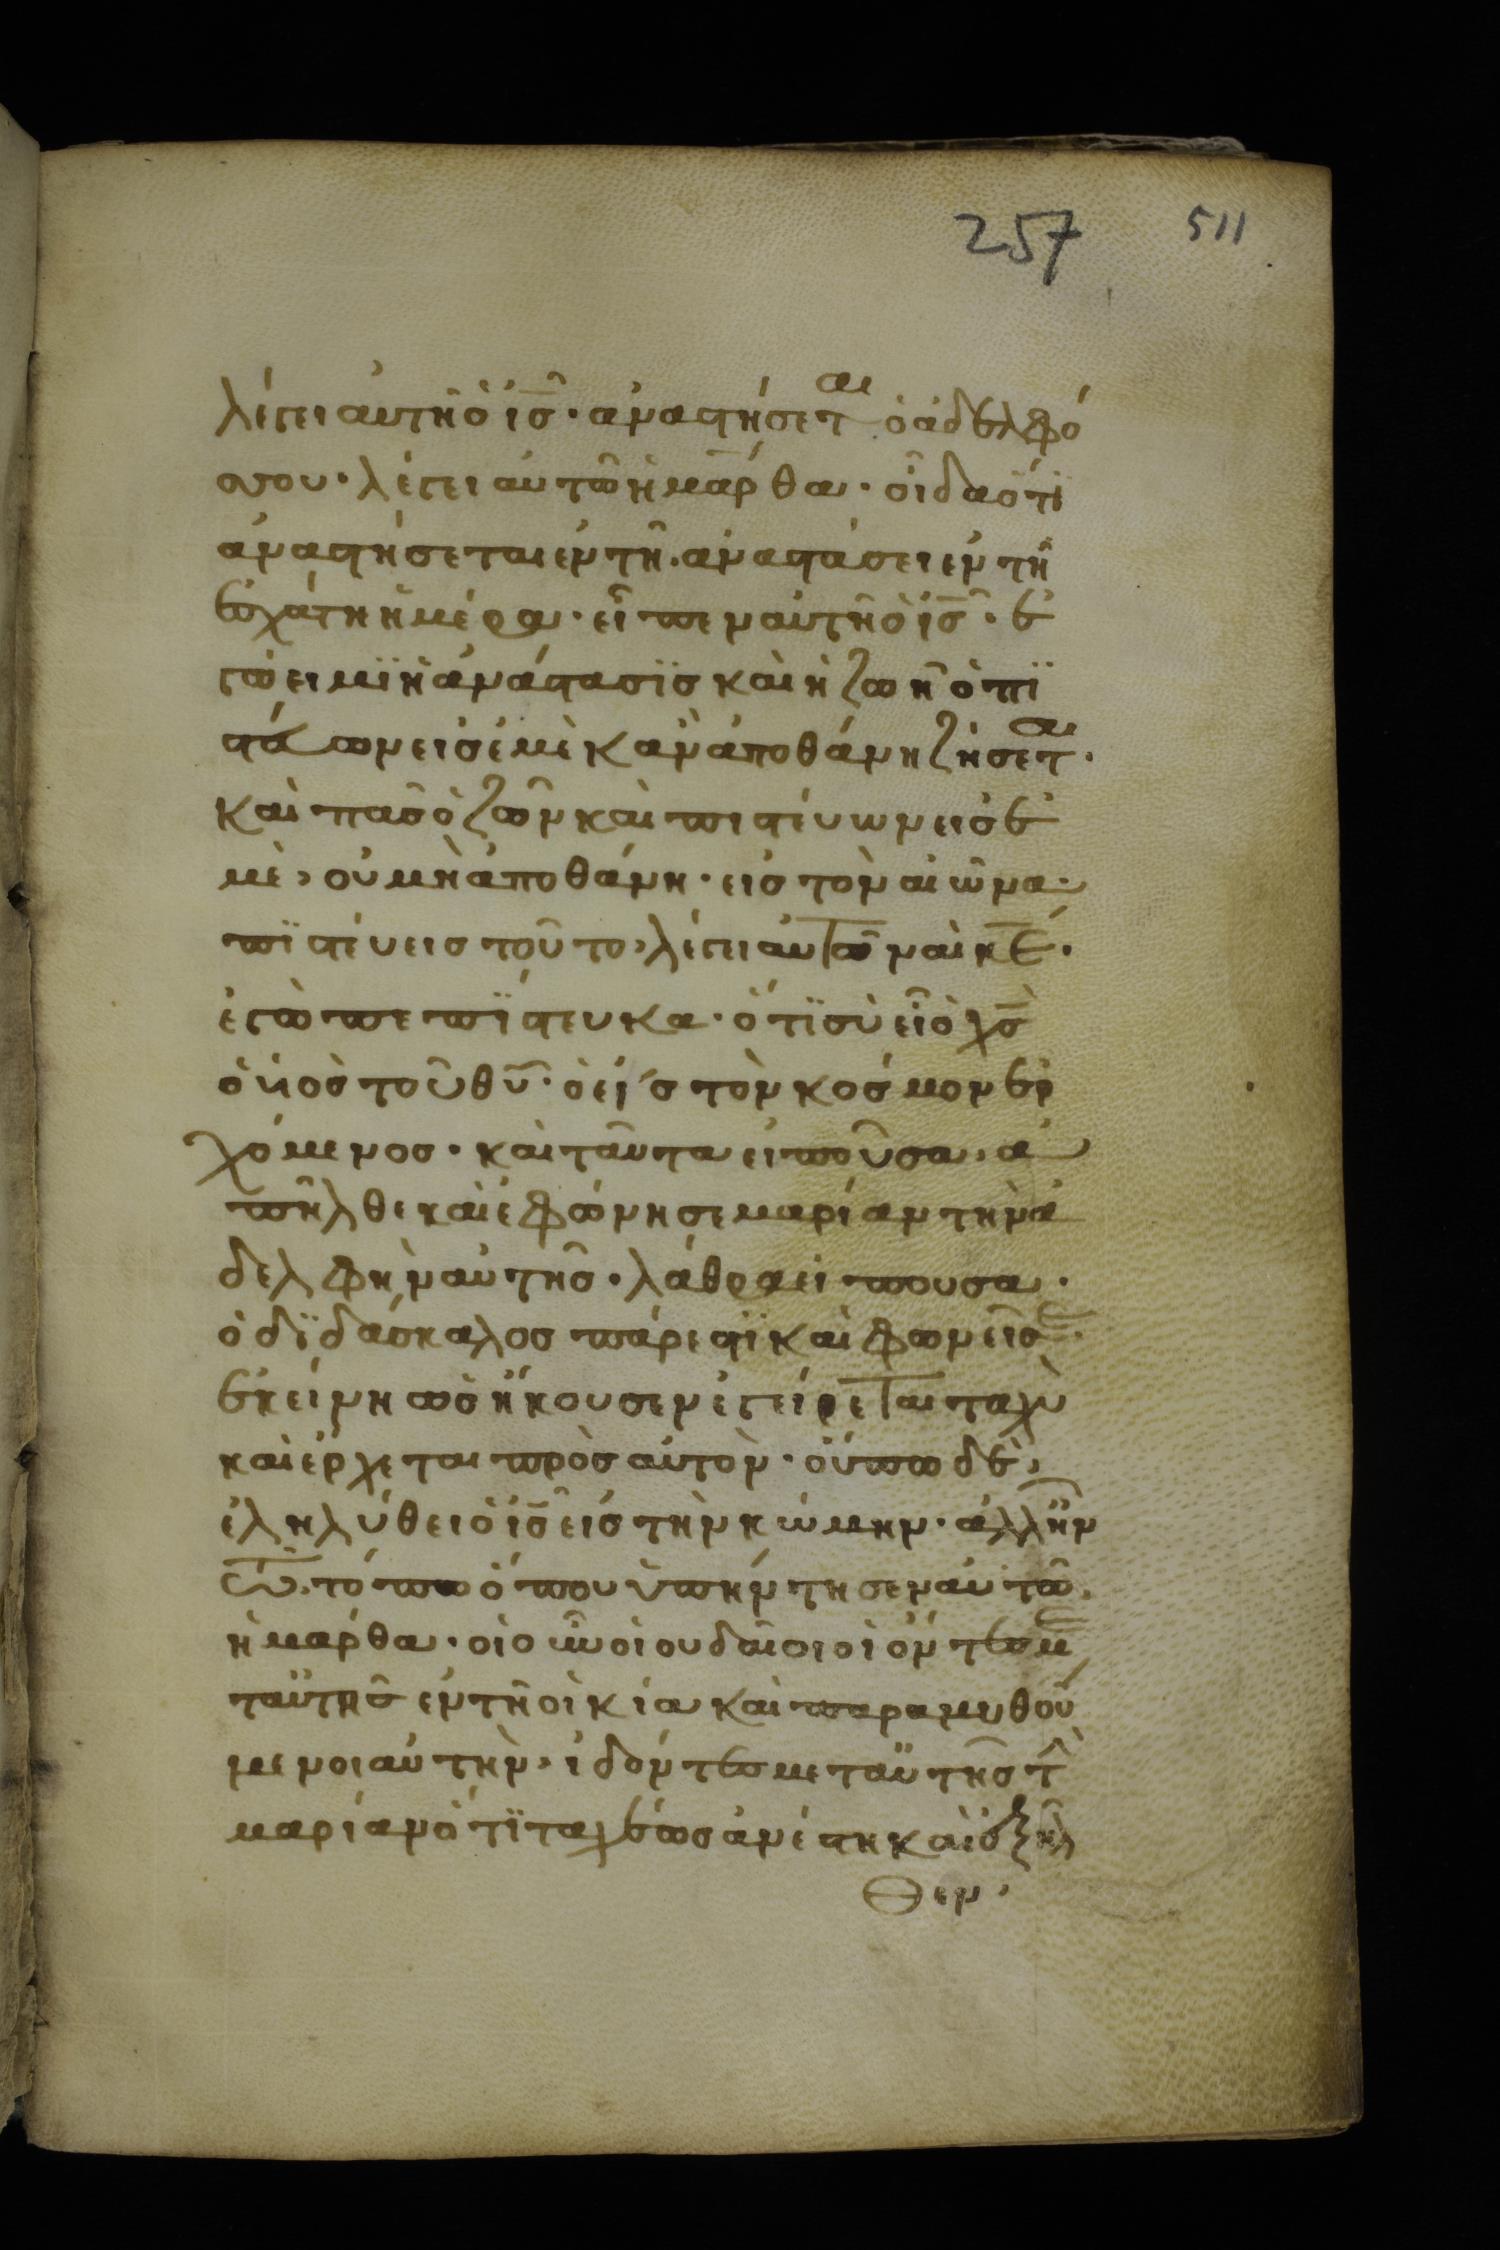 257 511
λέγει αὐτῆ ὁ ἰς̅· ἀναστήσεται ὁ ἀδελφό
σσου· λέγει αὐτῶ ἡ μάρθα· οἶδα ὅτϊ
ἀναστήσεται ἐν τῆ ἀναστάσει ἐν τῆ
ἐσχάτη ἡμέρα· εἶπεν αὐτῆ ὁ ἰς̅· ἐ
γώ εἰμϊ ἡ ἀνάστασϊς καὶ ἡ ζωή ὁ πϊ
στέυων εἰς ἐμὲ κἂν ἀποθάνη ζήσεται·
καὶ πᾶς ὁ ζῶν καὶ πιστέυων εἰς ἐ
μὲ, οὐ μὴ ἀποθάνη· εἰς τὸν αἰῶνα·
πϊστέυεις τοῦτο, λέγει αὐτῶ ναὶ κ̅ε̅·
ἐγὼ πεπϊστευκα· ὅτϊ σὺ εἶ ὁ χς̅
ὁ υἱὸς τοῦ θυ̅· ὁ εἰς τὸν κόσμον ἐρ
χόμενος· καὶ ταῦτα εἰποῦσα, ἀ
πῆλθε καὶ ἐφώνησε μαρίαν τὴν ἀ
δελφὴν αὐτῆς· λάθρα εἰπουσα·
ὁ δϊδάσκαλος πάρεστϊ καὶ φωνεῖ σε·
ἐκείνη ὡς ἤκουσεν ἐγείρεται ταχὺ
καὶ ἔρχεται πρὸς αὐτὸν· οὔπω δὲ,
ἐληλύθει ὁ ἰς̅ εἰς τὴν κώμην· ἀλλ ἦν
ἐν τῶ τόπω ὅπου ὑπήντησεν αὐτῶ,
ἡ μάρθα· οἱ οὖν ἰουδαῖοι οἱ ὄντες με
τ αὐτῆς ἐν τῆ οἰκία καὶ παραμυθού
μενοι αὐτὴν, ἰδόντες μετ αὐτῆς τὴν
μαρίαν ὅτϊ ταχέως ἀνέστη καὶ ἐξῆλ
θεν,